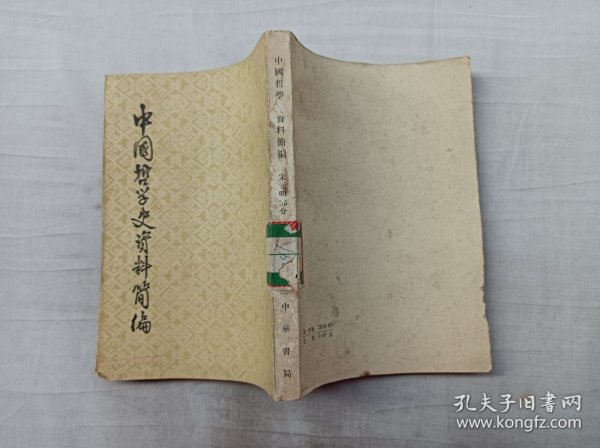 中國哲学史資料簡編
中國哲學
資料簡編
宋元明部分
中華書局
孔夫子旧书网
www.kongfz.com